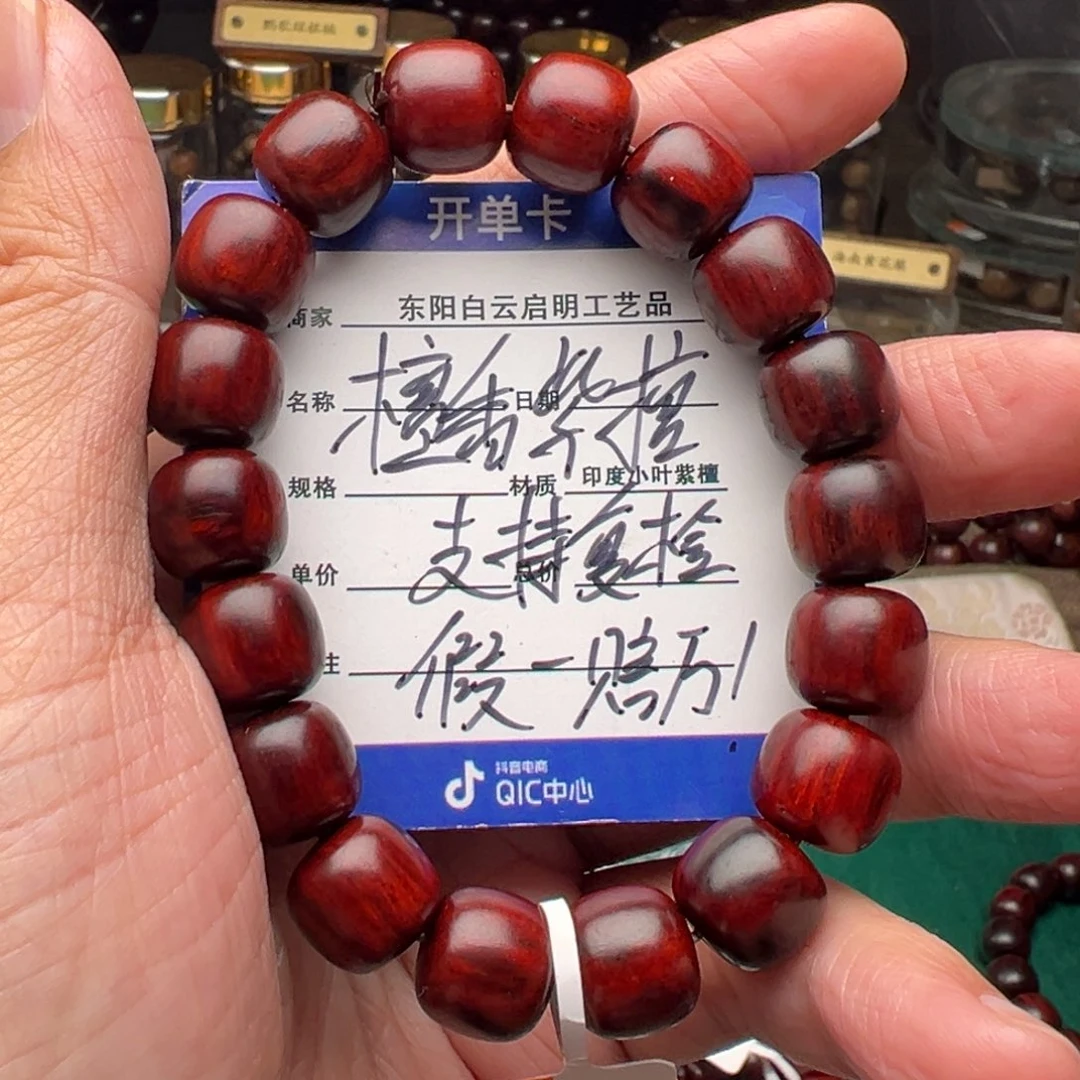 开单卡
商家 东阳白云启明工艺品
名称 檀香紫檀 日期
规格 材质 印度小叶紫檀
支持复检
单价 总价
注 假一赔万!
抖音电商
QIC中心
海南黄花梨